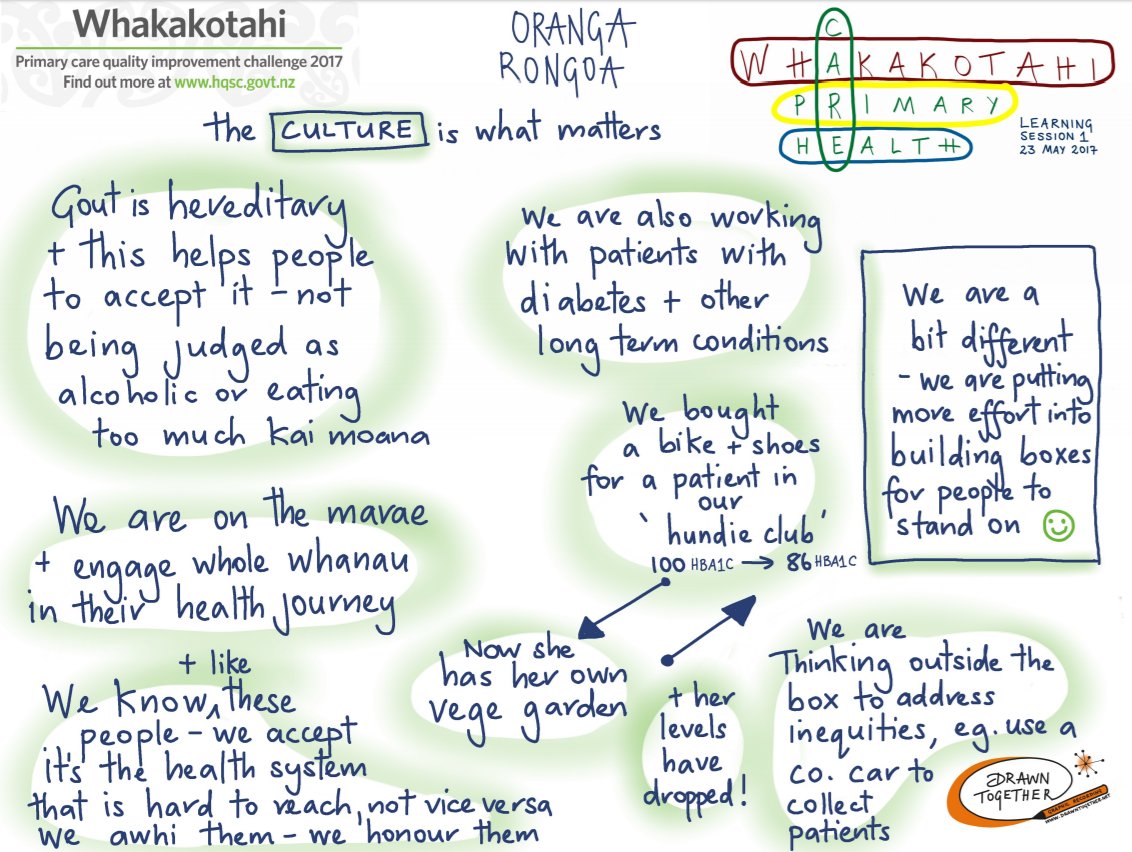 Whakakotahi
Primary care quality improvement challenge 2017
Find out more at www.hqsc.govt.nz
ORANGA
RONGOA
CARE
WHAKAKOTAHI
PRIMARY
HEALTH
LEARNING
SESSION 1
23 MAY 2017
the CULTURE is what matters
Gout is hereditary
+ this helps people
to accept it - not
being judged as
alcoholic or eating
too much kai moana
We are on the marae
+ engage whole whanau
in their health journey
+ like
We know ^ these
people - we accept
it's the health system
that is hard to reach, not vice versa
we awhi them - we honour them
We are also working
with patients with
diabetes + other
long term conditions
We bought
a bike + shoes
for a patient in
our
'hundie club'
100 HBA1C → 86 HBA1C
Now she
has her own
vege garden
+ her
levels
have
dropped!
We are a
bit different
- we are putting
more effort into
building boxes
for people to
stand on ☺
We are
Thinking outside the
box to address
inequities, eg. use a
co. car to
collect
patients
DRAWN
TOGETHER
GRAPHIC RECORDING
WWW.DRAWNTOGETHER.NET